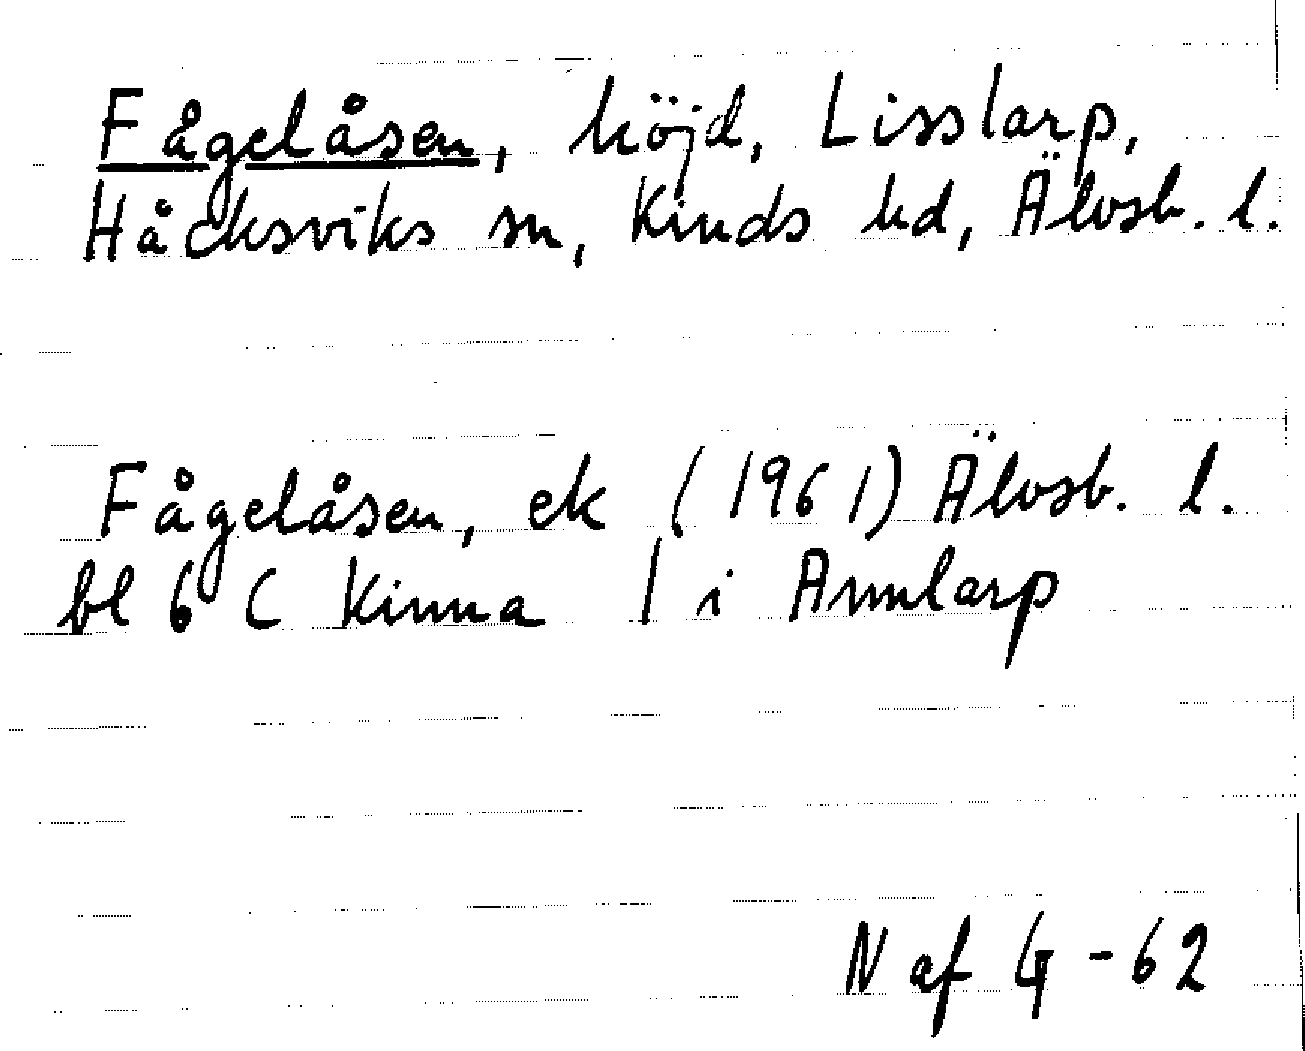 Fågelåsen, höjd, Lisslarp,
Håcksviks sn, Kinds hd, Älvsb. l.
Fågelåsen, ek (1961) Älvsb. l.
bl 6 C Kinna / i Annlarp
N af G-62